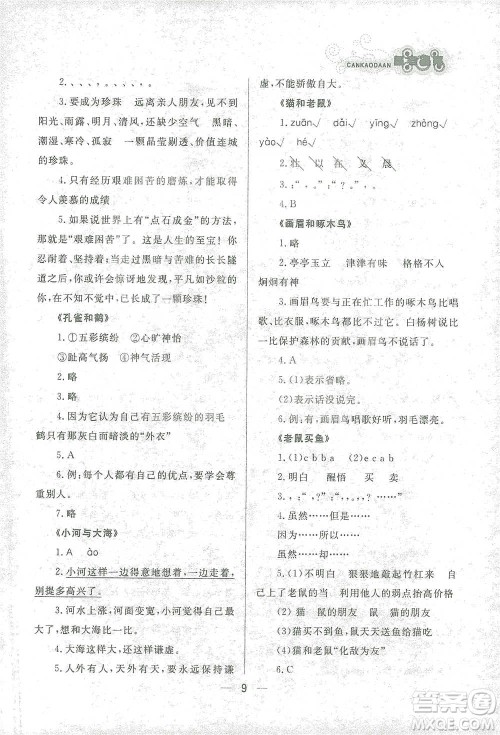 CANKAODAAN
2.、、、、、、。
3.要成为珍珠　远离亲人朋友,见不到
阳光、雨露、明月、清风,还缺少空气　黑暗、
潮湿、寒冷、孤寂　一颗晶莹剔透、价值连城
的珍珠。
4.只有经历艰难困苦的磨炼,才能取得
令人羡慕的成绩
5.如果说世界上有“点石成金”的方法,
那就是“艰难困苦”。这是人生的至宝!你
忍耐着、坚持着,当走过黑暗与苦难的长长隧
道之后,你或许会惊讶地发现,平凡如沙粒的
你,在不知不觉中,已长成了一颗珍珠!
《孔雀和鹤》
1.①五彩缤纷　②心旷神怡
③趾高气扬　④神气活现
2.略
3.略
4.因为它认为自己有五彩缤纷的羽毛
鹤只有那灰白而暗淡的“外衣”
5.A
6.例:每个人都有自己的优点,要学会尊
重别人。
《小河与大海》
1.A　ào
2.小河这样一边得意地想着,一边流着,
别提多高兴了。
3.河水上涨,河面变宽了。小河变得骄
傲,想和大海比一比。
4.大海这样大,还这样谦虚。
5.人外有人,天外有天,要永远保持谦
虚,不能骄傲自大。
《猫和老鼠》
1.zuān√　dǎi√　yīng√　zhēng√
yào√　hé√
2.往　以　在　义　晨
3.:“　”:“　,　。”
《画眉和啄木鸟》
1.略
2.亭亭玉立　津津有味　格格不入
炯炯有神
3.例:画眉鸟要与正在忙工作的啄木鸟比唱
歌、比衣服,啄木鸟不和它比。白杨树说比一
比保护森林的贡献,画眉鸟飞走了。
4.A
5.(1)表示省略。
(2)表示话没说完。
6.例:画眉鸟唱歌好听,羽毛漂亮。
《老鼠买鱼》
1.(1)c b b a　(2)c b a
2.明白　醒悟　买　卖
4.虽然……但是……
虽然……可是……
5.(1)不明白　狠狠地敲起竹杠来　自
己上了老鼠的当　利用他人的弱点抬高价格
(2)猫　鼠的朋友　鼠　猫的朋友
(3)猫忘了抓老鼠,鼠天天送鱼给猫
(4)猫和老鼠“化敌为友”
6.C
9